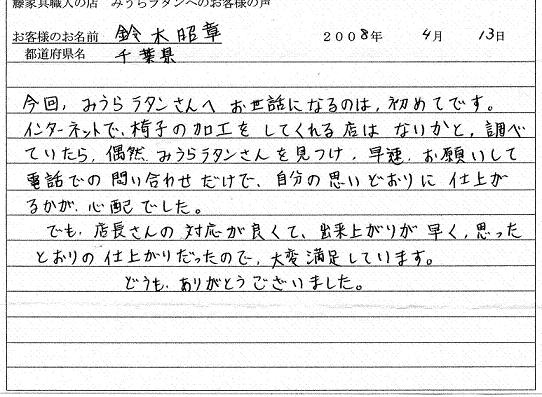 藤家具職人の店 みうらラタンへのお客様の声
お客様のお名前 鈴木昭章 2008年 4月 13日
都道府県名 千葉県
今回、みうらラタンさんへ お世話になるのは、初めてです。
インターネットで、椅子の加工を してくれる店は ないかと、調べ
ていたら、偶然、みうらラタンさんを見つけ、早速、お願いして
電話での 問い合わせ だけで、自分の思いどおりに 仕上が
るかが、心配でした。
でも、店長さんの 対応が良くて、出来上がりが 早く、思った
とおりの 仕上がりだったので、大変満足しています。
どうも、ありがとうございました。